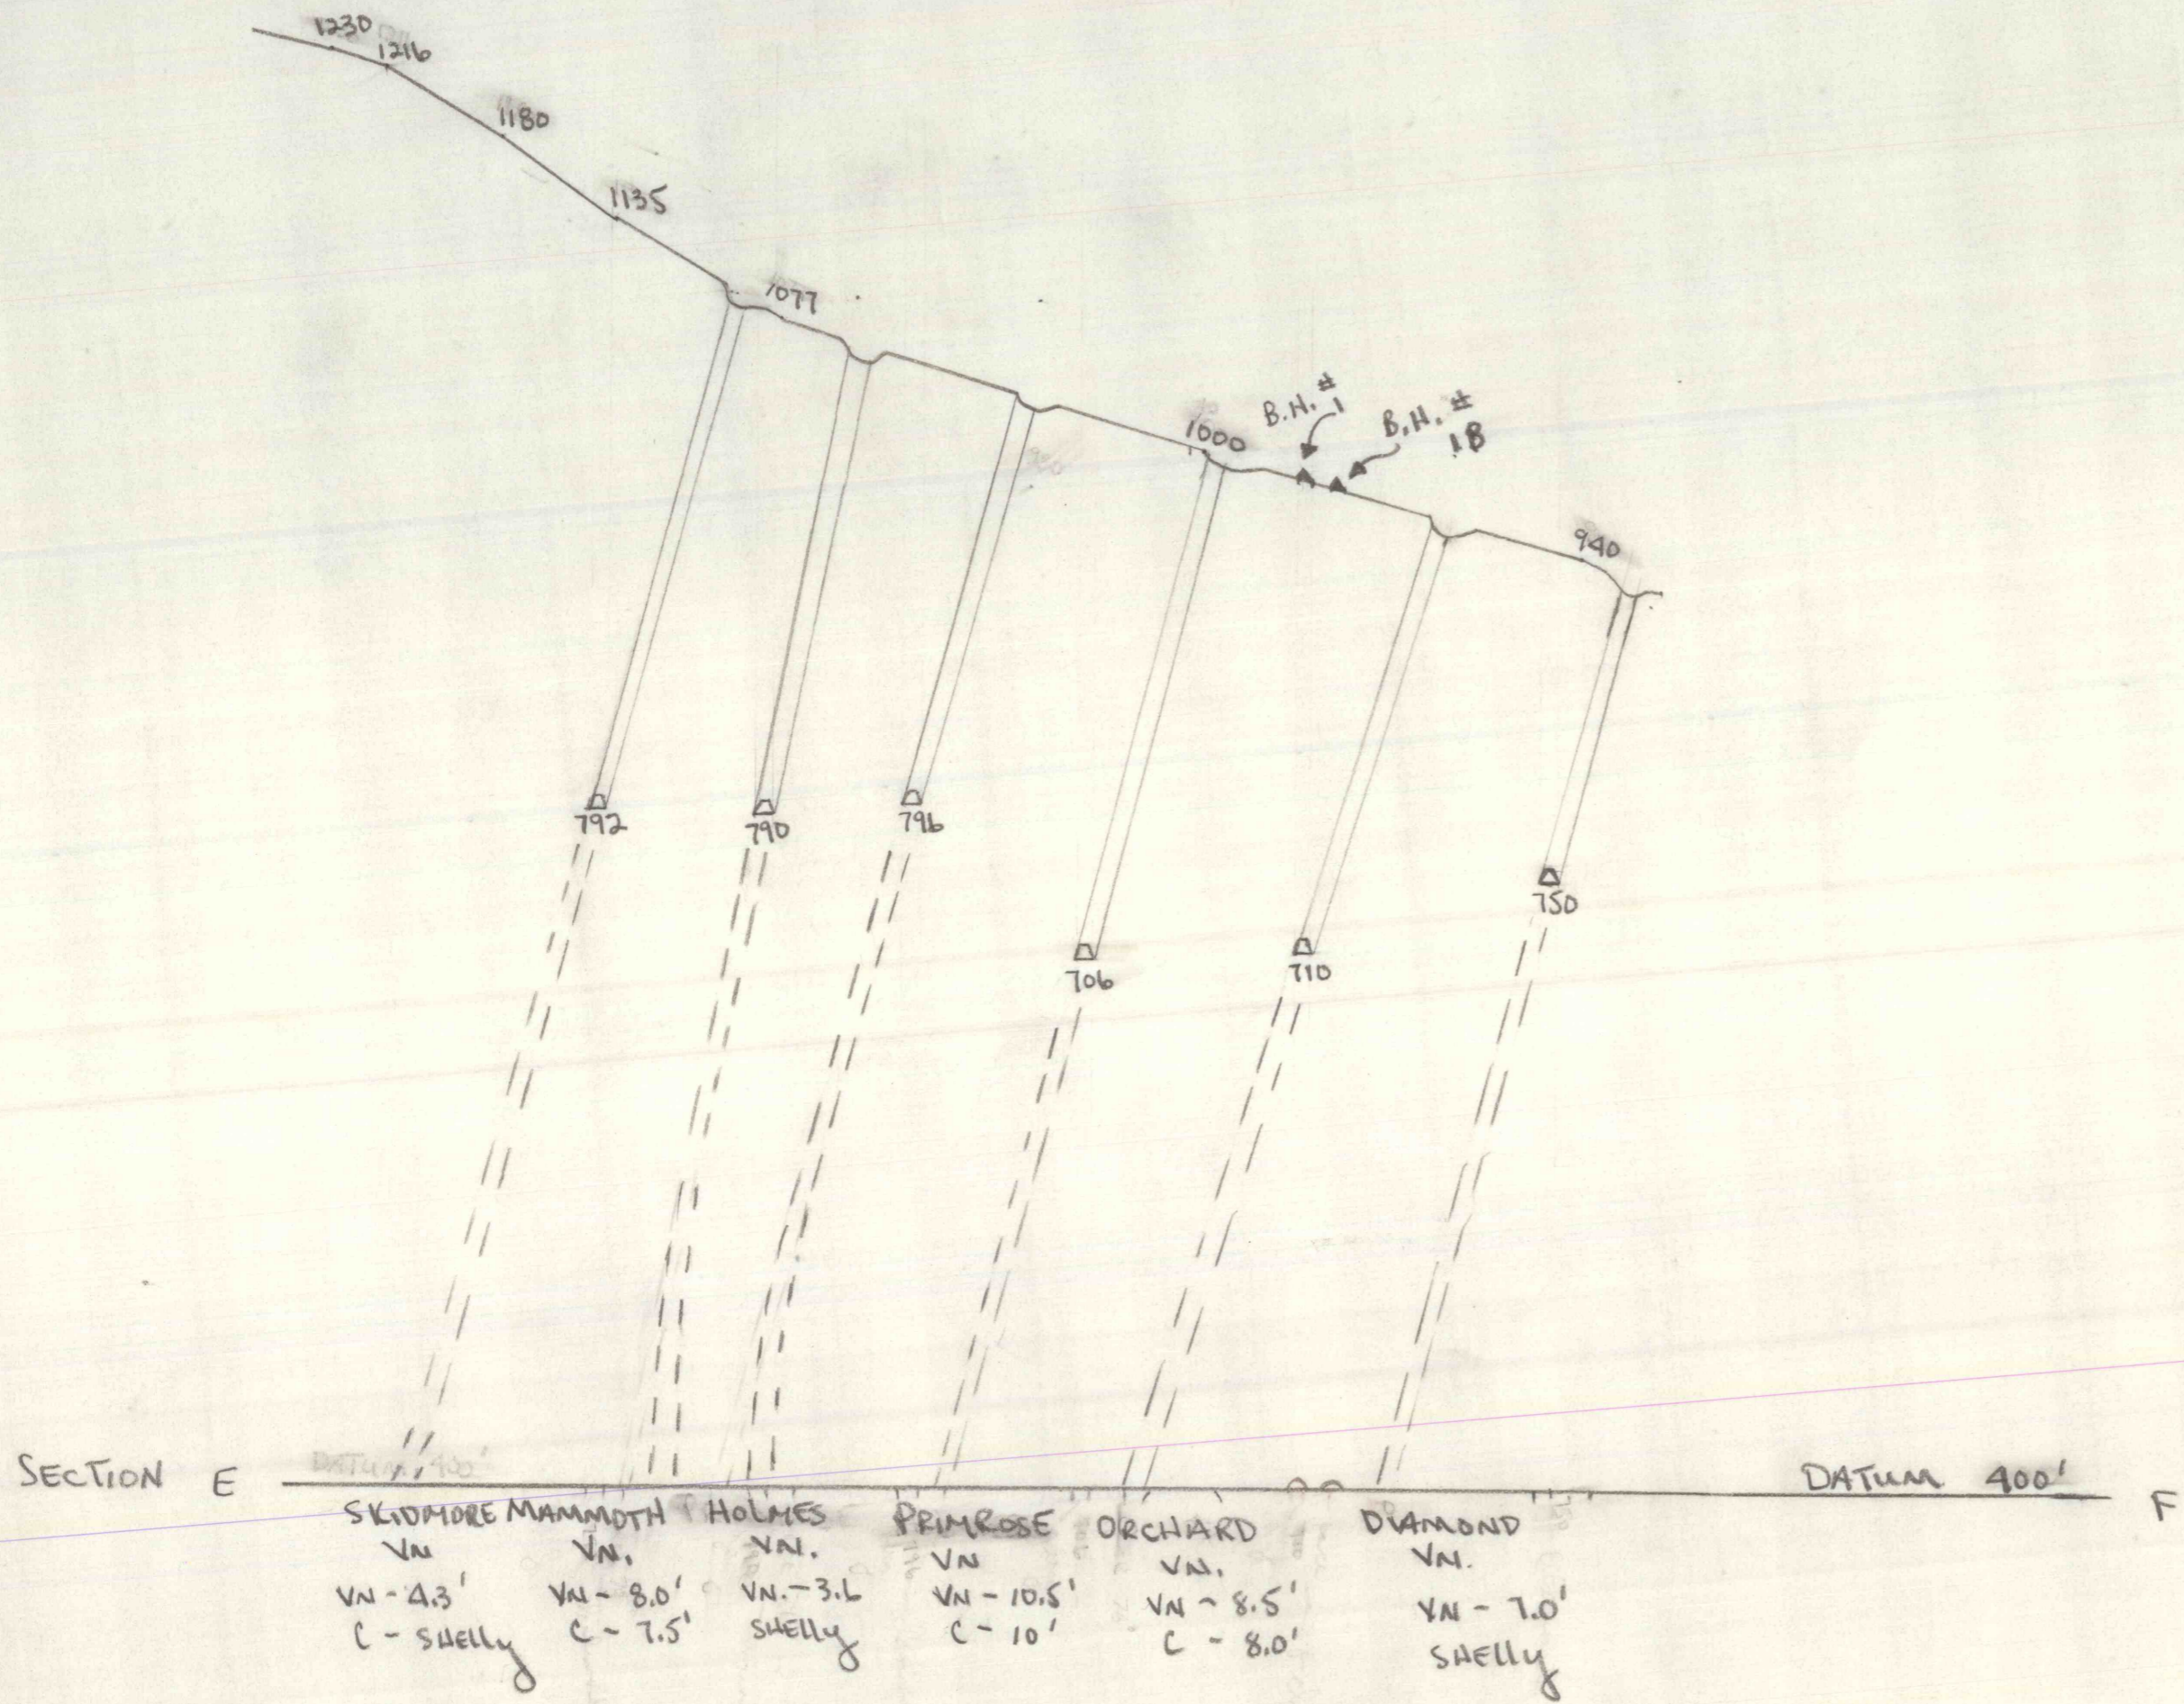 1230
1216
1180
1135
1077
1000
B.H. # 1
B.H. # 1B
940
792
790
796
706
710
750
SECTION E
DATUM 400'
DATUM 400'
F
SKIDMORE
VN
VN - 4.3'
C - SHELLY
MAMMOTH
VN.
VN - 8.0'
C - 7.5'
HOLMES
VN.
VN. - 3.6
SHELLY
PRIMROSE
VN
VN - 10.5'
C - 10'
ORCHARD
VN.
VN - 8.5'
C - 8.0'
DIAMOND
VN.
VN - 7.0'
SHELLY